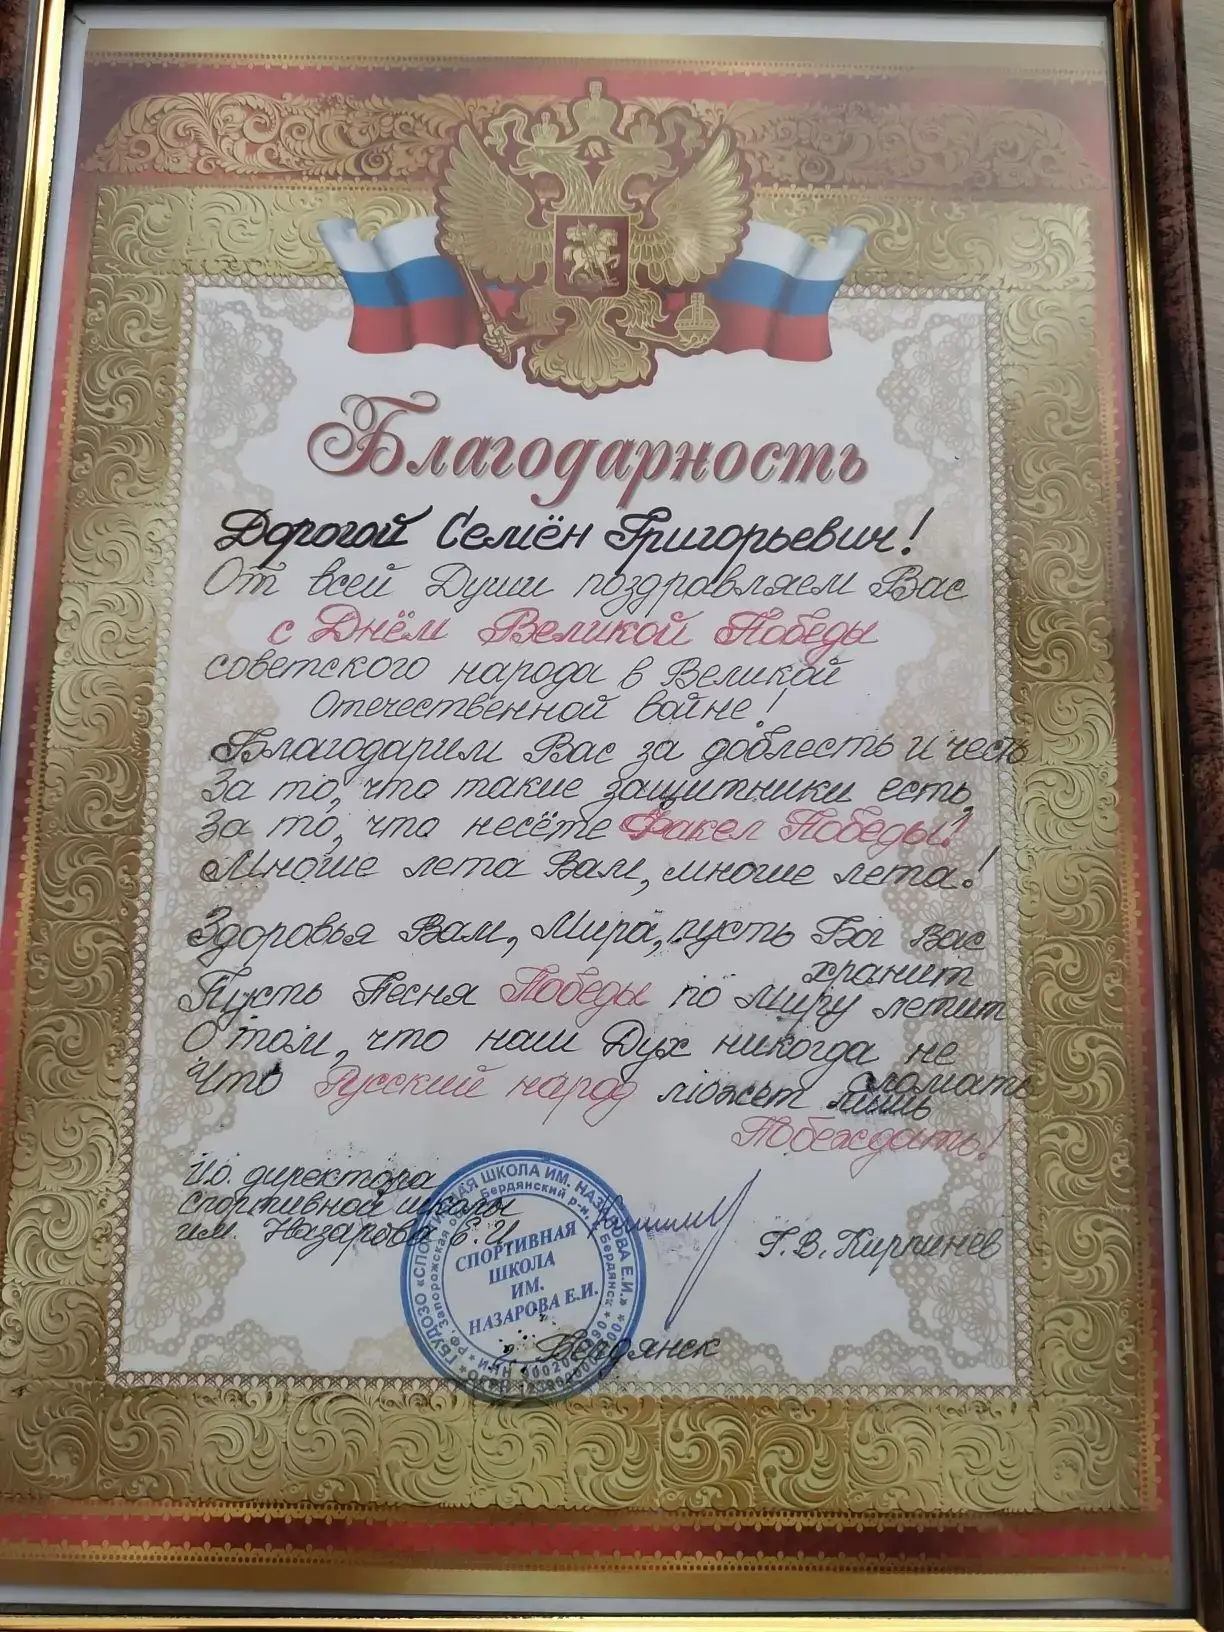 Благодарность
Дорогой Семён Григорьевич!
От всей Души поздравляем Вас
с Днём Великой Победы
советского народа в Великой
Отечественной войне!
Благодарим Вас за доблесть и честь
За то, что такие защитники есть,
За то, что несёте Факел Победы!
Многие лета Вам, многие лета!
Здоровья Вам, Мира, пусть Бог Вас
хранит
Пусть Песня Победы по миру летит
О том, что наш Дух никогда не
сломать
Что Русский народ может лишь
Побеждать!
И.о. директора
спортивной школы
им. Назарова Е.И.
Г.В. Кирпинёв
г. Бердянск
СПОРТИВНАЯ
ШКОЛА
ИМ.
НАЗАРОВА Е.И.
ГБУДОЗО «СПОРТИВНАЯ ШКОЛА ИМ. НАЗАРОВА Е.И.»
РФ, Запорожская обл., Бердянский р-н, г. Бердянск